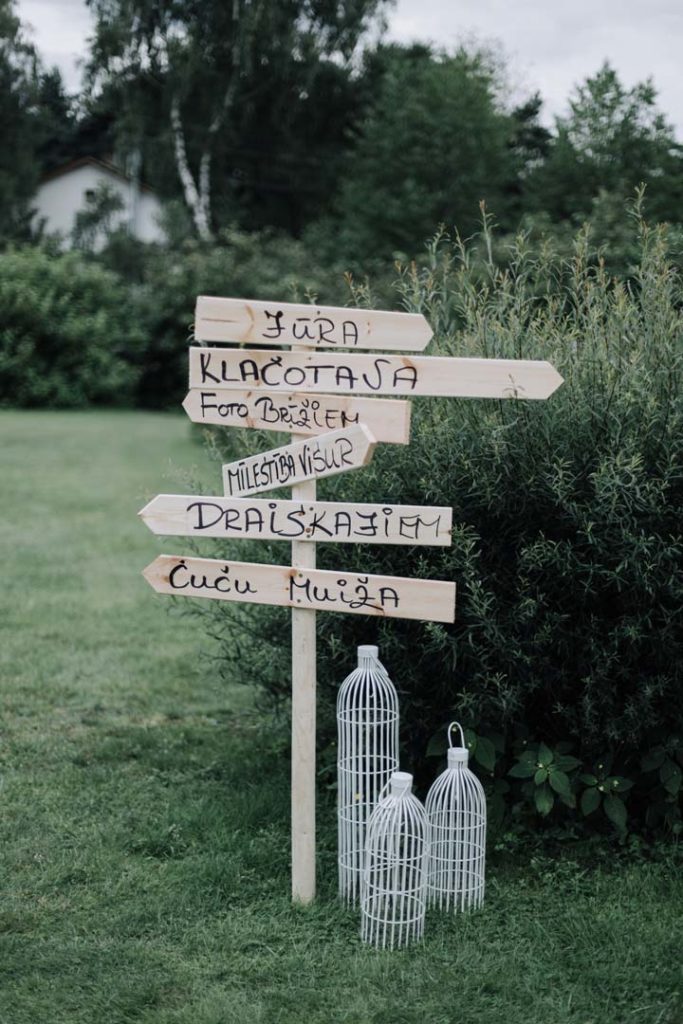 JŪRA
KLAČOTAJA
FOTO BRĪŽIEM
MĪLESTĪBA VISUR
DRAISKAJIEM
ČUČU MUIŽA